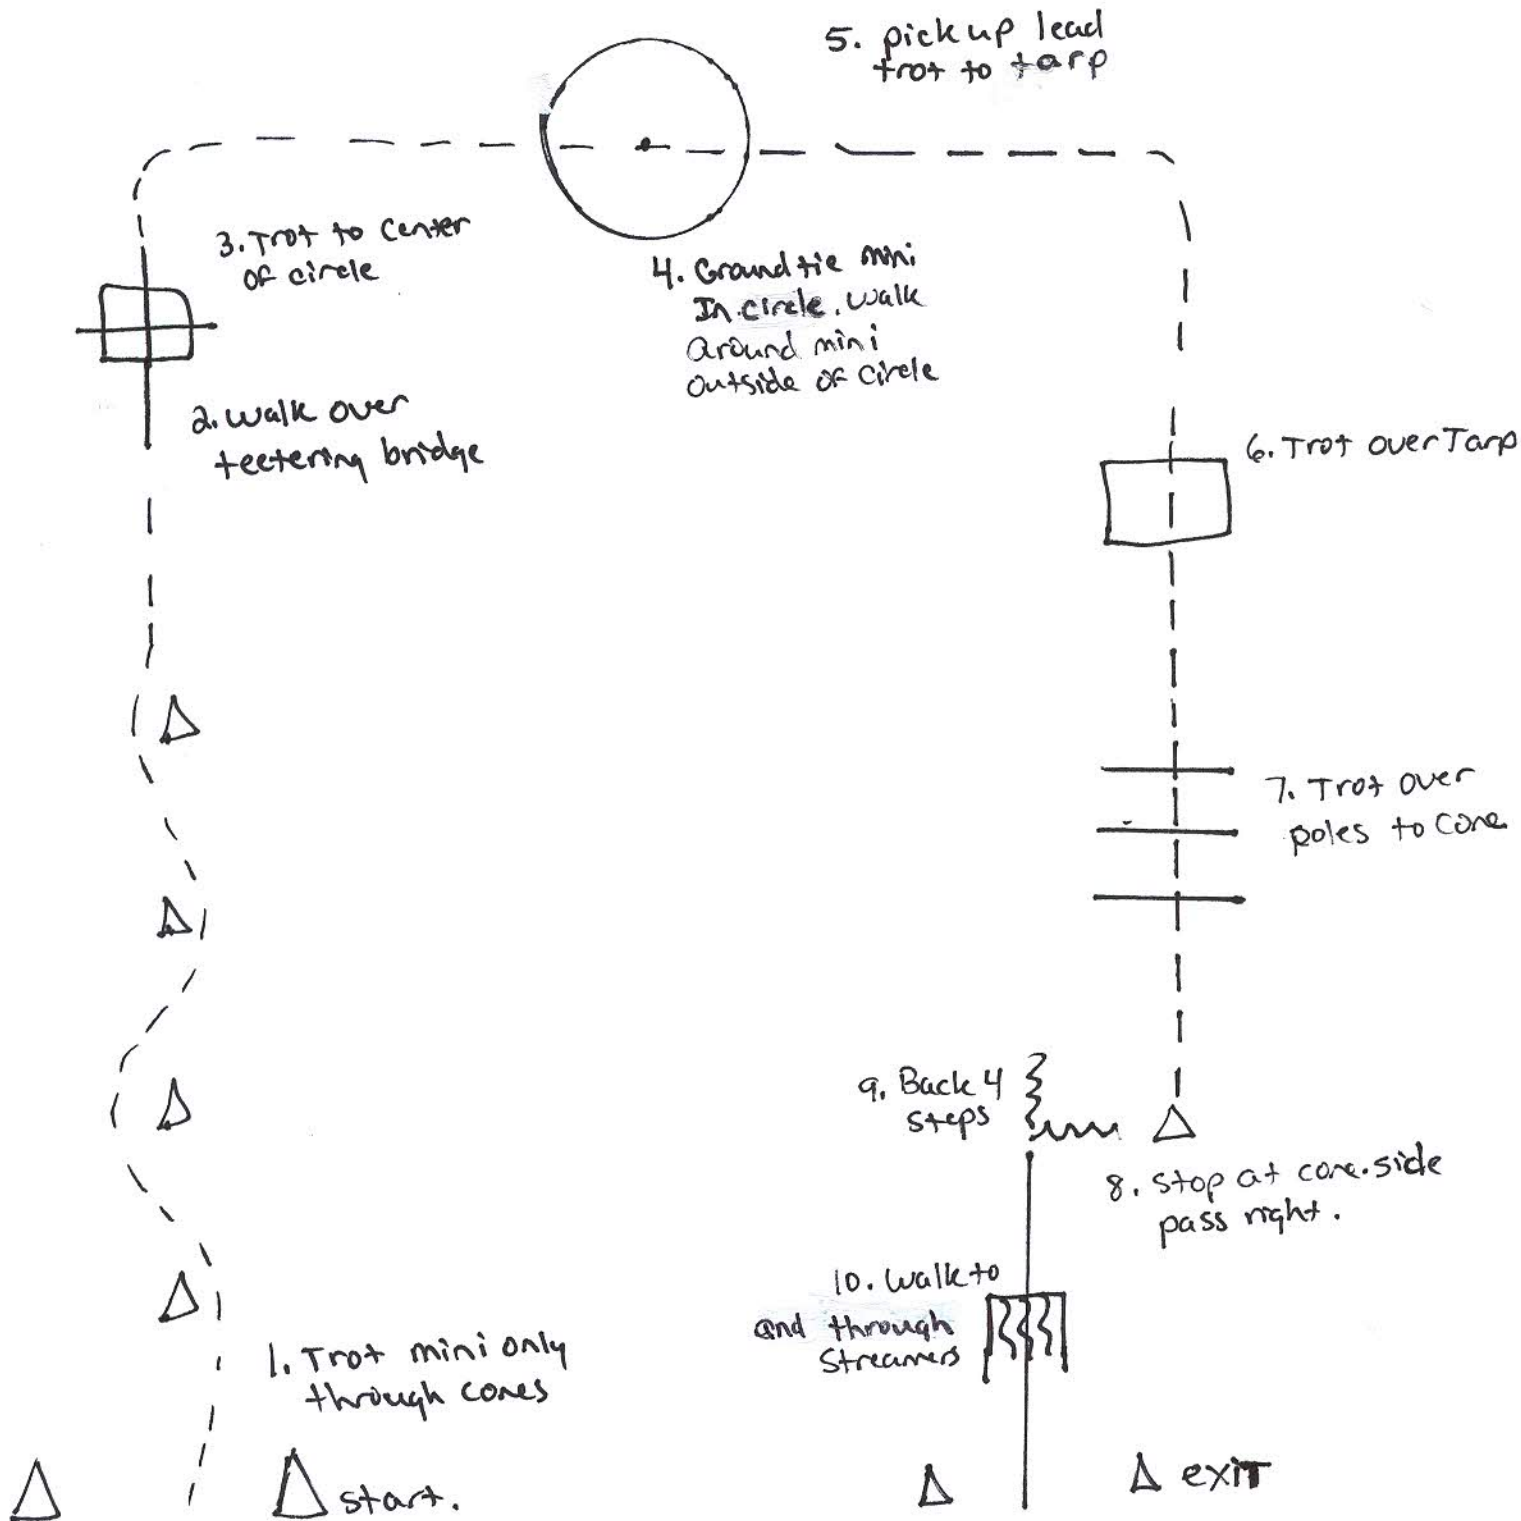 5. pick up lead
trot to tarp
3. Trot to center
of circle
4. Ground tie mini
In circle. walk
around mini
outside of circle
2. walk over
teetering bridge
6. Trot over Tarp
7. Trot over
poles to cone
9. Back 4
steps
8. stop at cone. side
pass right.
10. walk to
and through
streamers
1. Trot mini only
through cones
start.
exit